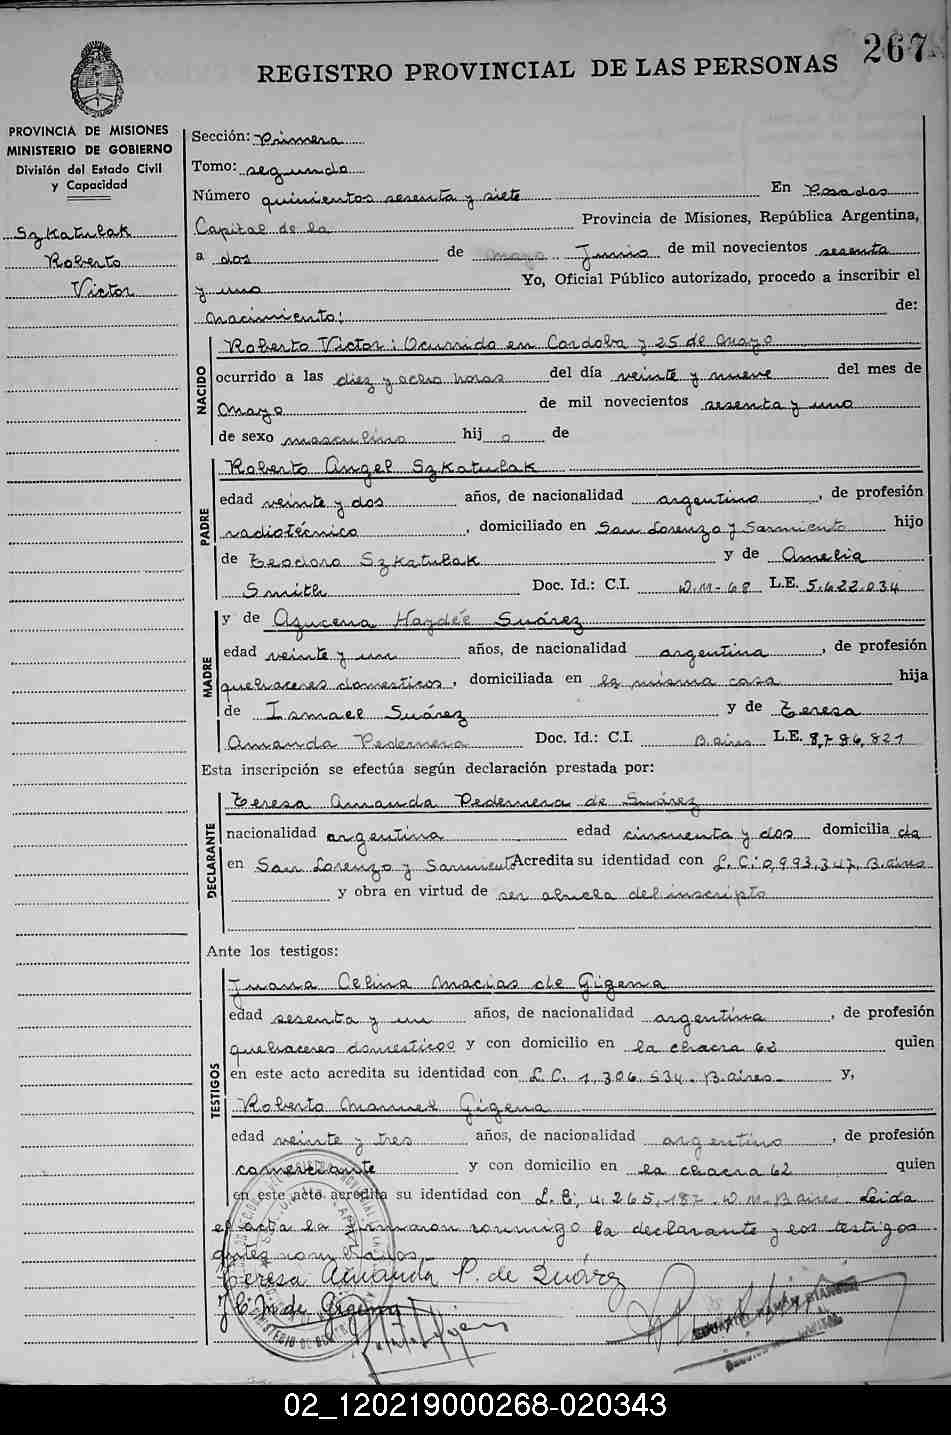 267
REGISTRO PROVINCIAL DE LAS PERSONAS
PROVINCIA DE MISIONES
MINISTERIO DE GOBIERNO
División del Estado Civil
y Capacidad
Szkatulak
Roberto
Victor
Sección: Primera
Tomo: segundo
Número quinientos sesenta y siete En Posadas
Capital de la Provincia de Misiones, República Argentina,
a dos de mayo Junio de mil novecientos sesenta
y uno Yo, Oficial Público autorizado, procedo a inscribir el
nacimiento: de:
NACIDO
Roberto Victor: Ocurrido en Cordoba y 25 de mayo
ocurrido a las diez y ocho horas del día veinte y nueve del mes de
mayo de mil novecientos sesenta y uno
de sexo masculino hij o de
PADRE
Roberto Angel Szkatulak
edad veinte y dos años, de nacionalidad argentino, de profesión
radiotécnico, domiciliado en San Lorenzo y Sarmiento hijo
de Teodoro Szkatulak y de Amelia
Smith Doc. Id.: C.I. D.M-68 L.E. 5.622.034
MADRE
y de Azucena Haydée Suárez
edad veinte y un años, de nacionalidad argentina, de profesión
quehaceres domesticos, domiciliada en la misma casa hija
de Ismael Suárez y de Teresa
Amanda Pedernera Doc. Id.: C.I. B.aires L.E. 8,786,821
Esta inscripción se efectúa según declaración prestada por:
DECLARANTE
Teresa Amanda Pedernera de Suárez
nacionalidad argentina edad cincuenta y dos domicilia da
en San Lorenzo y Sarmiento Acredita su identidad con L.C: 0,993,347, B.aires
y obra en virtud de ser abuela del inscripto
Ante los testigos:
TESTIGOS
Juana Celina Macias de Gigena
edad sesenta y un años, de nacionalidad argentina, de profesión
quehaceres domesticos y con domicilio en la chacra 62 quien
en este acto acredita su identidad con L.C. 1,306,534. B.aires- y,
Roberto Manuel Gigena
edad veinte y tres años, de nacionalidad argentino, de profesión
comerciante y con domicilio en la chacra 62 quien
en este acto acredita su identidad con L.E, 4,265,187. D.M. B.aires. Leida
el acta la firmaron conmigo la declarante y los testigos
antes nombrados.
Teresa Amanda P. de Suárez
J C M de Gigena
02_120219000268-020343